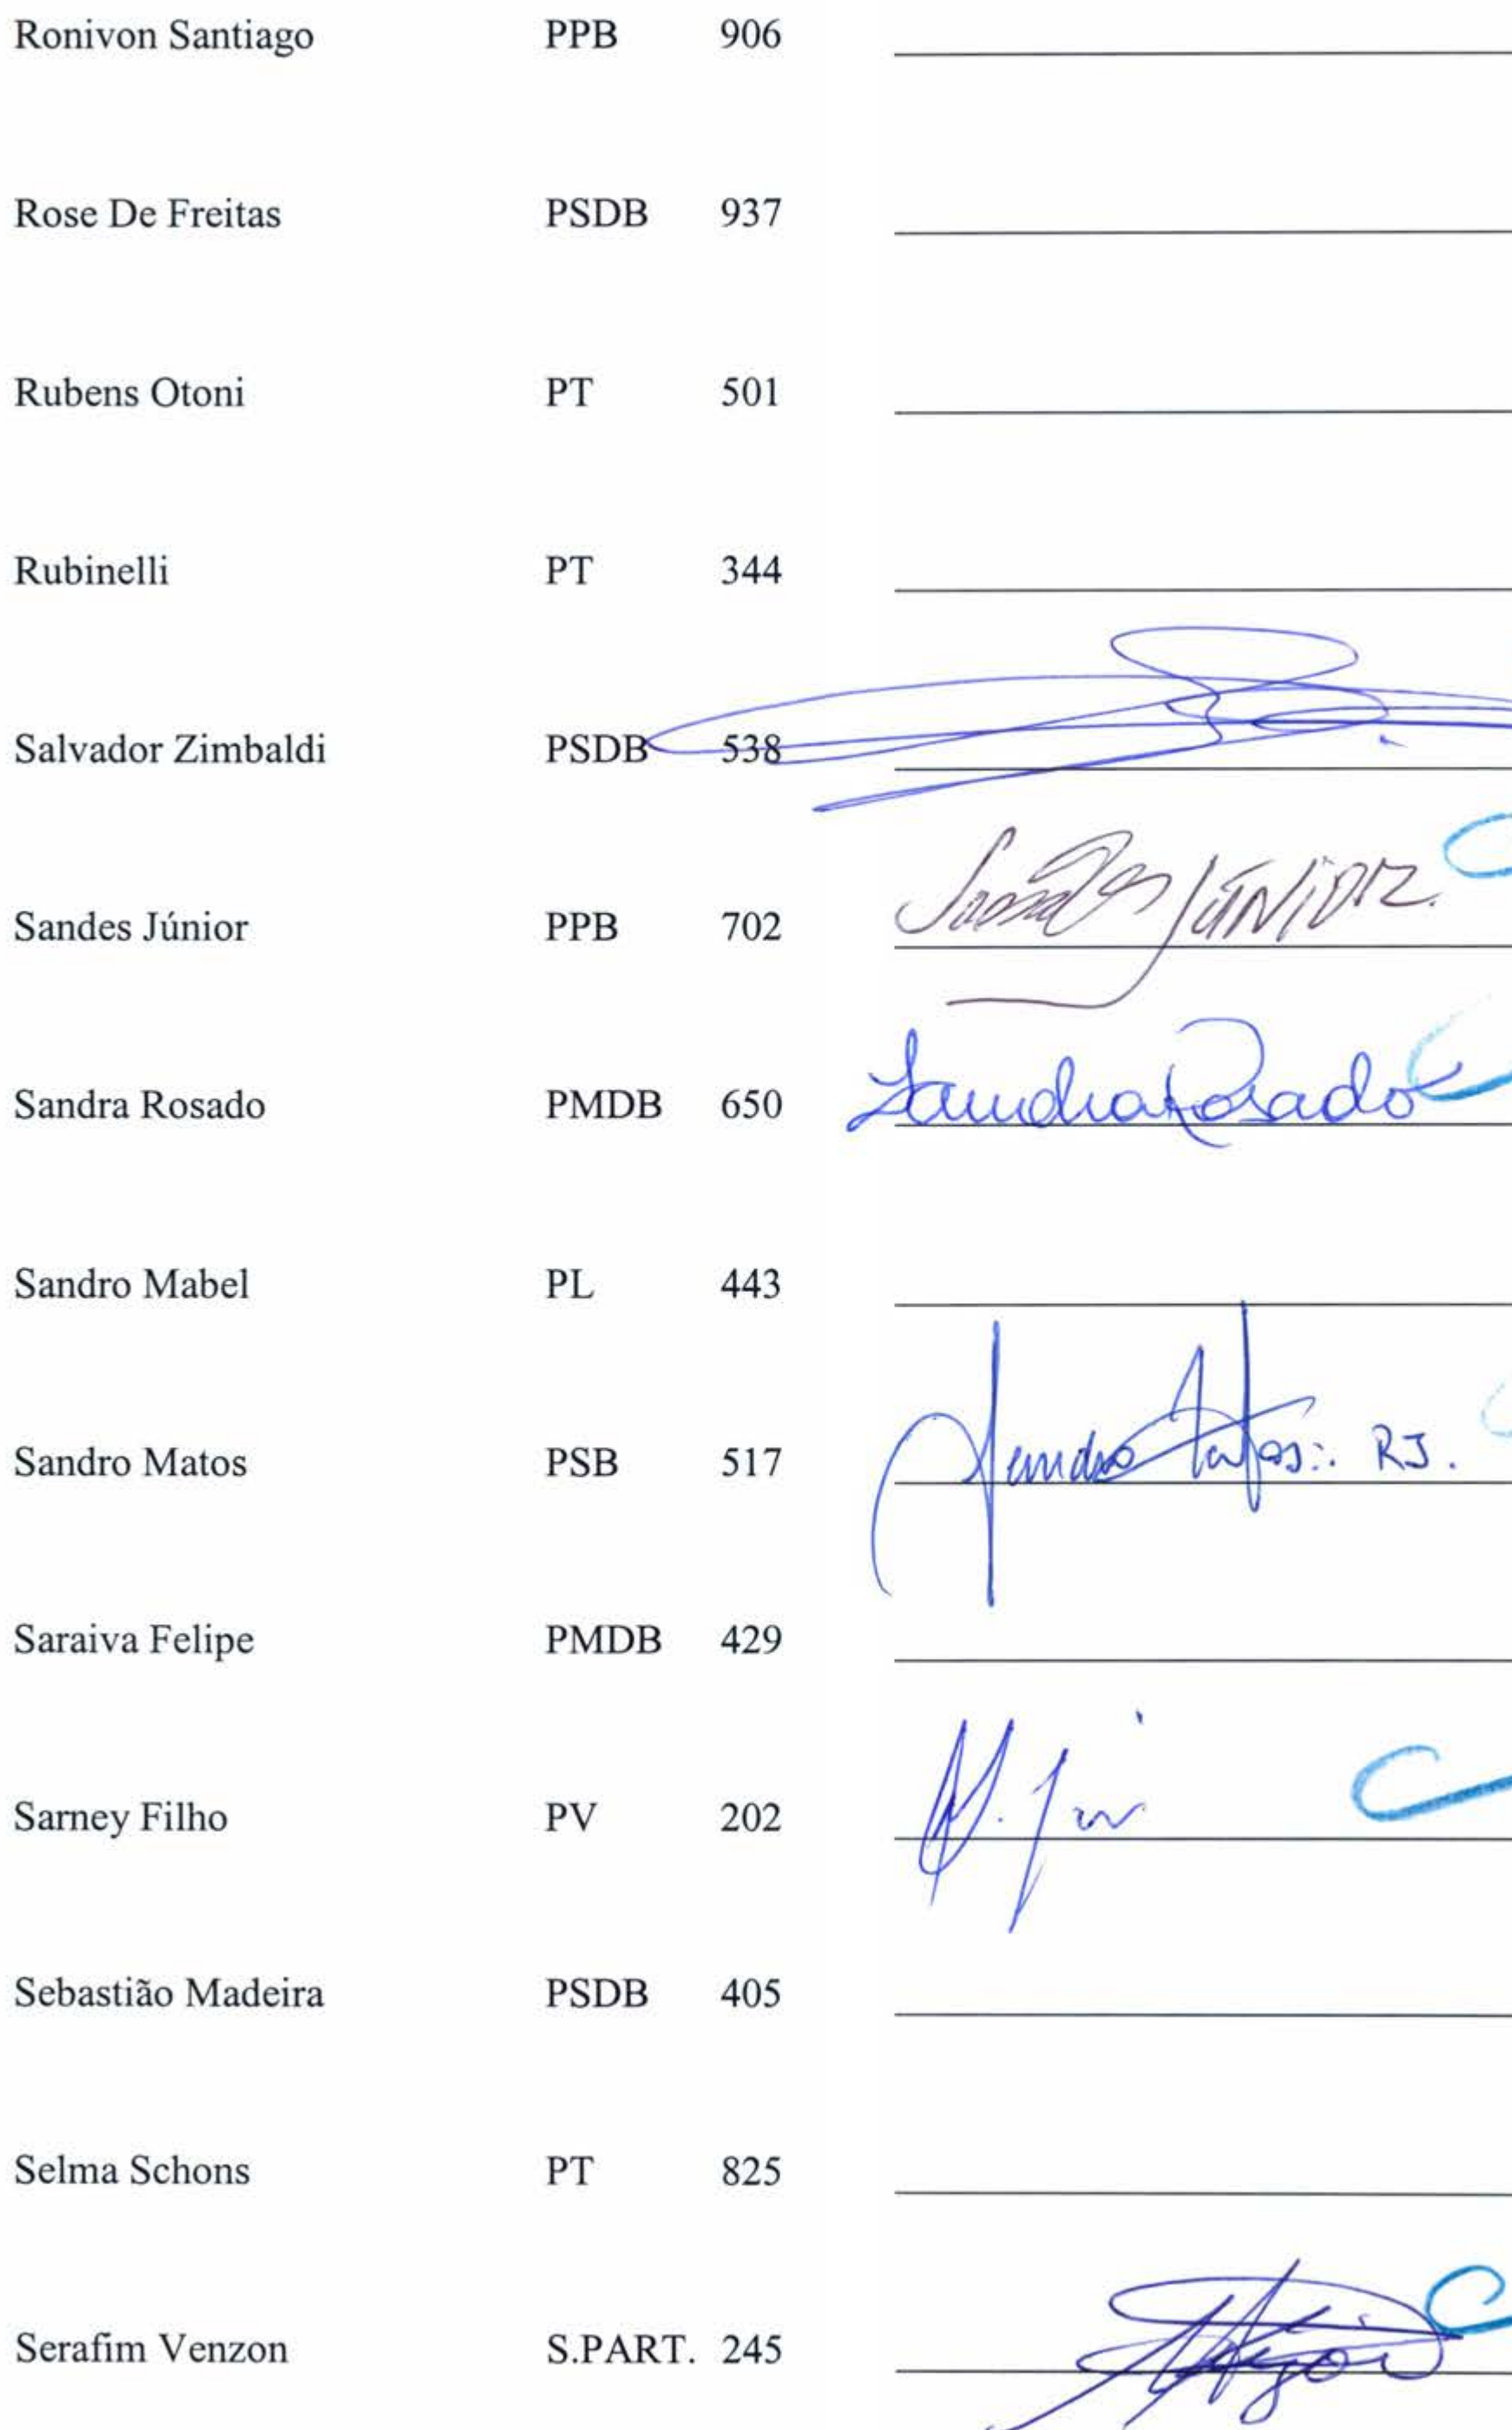 Ronivon Santiago PPB 906
Rose De Freitas PSDB 937
Rubens Otoni PT 501
Rubinelli PT 344
Salvador Zimbaldi PSDB 538
Sandes Júnior PPB 702 Sandes JÚNIOR.
Sandra Rosado PMDB 650 Sandra Rosado
Sandro Mabel PL 443
Sandro Matos PSB 517 Sandro Matos: RJ.
Saraiva Felipe PMDB 429
Sarney Filho PV 202
Sebastião Madeira PSDB 405
Selma Schons PT 825
Serafim Venzon S.PART. 245